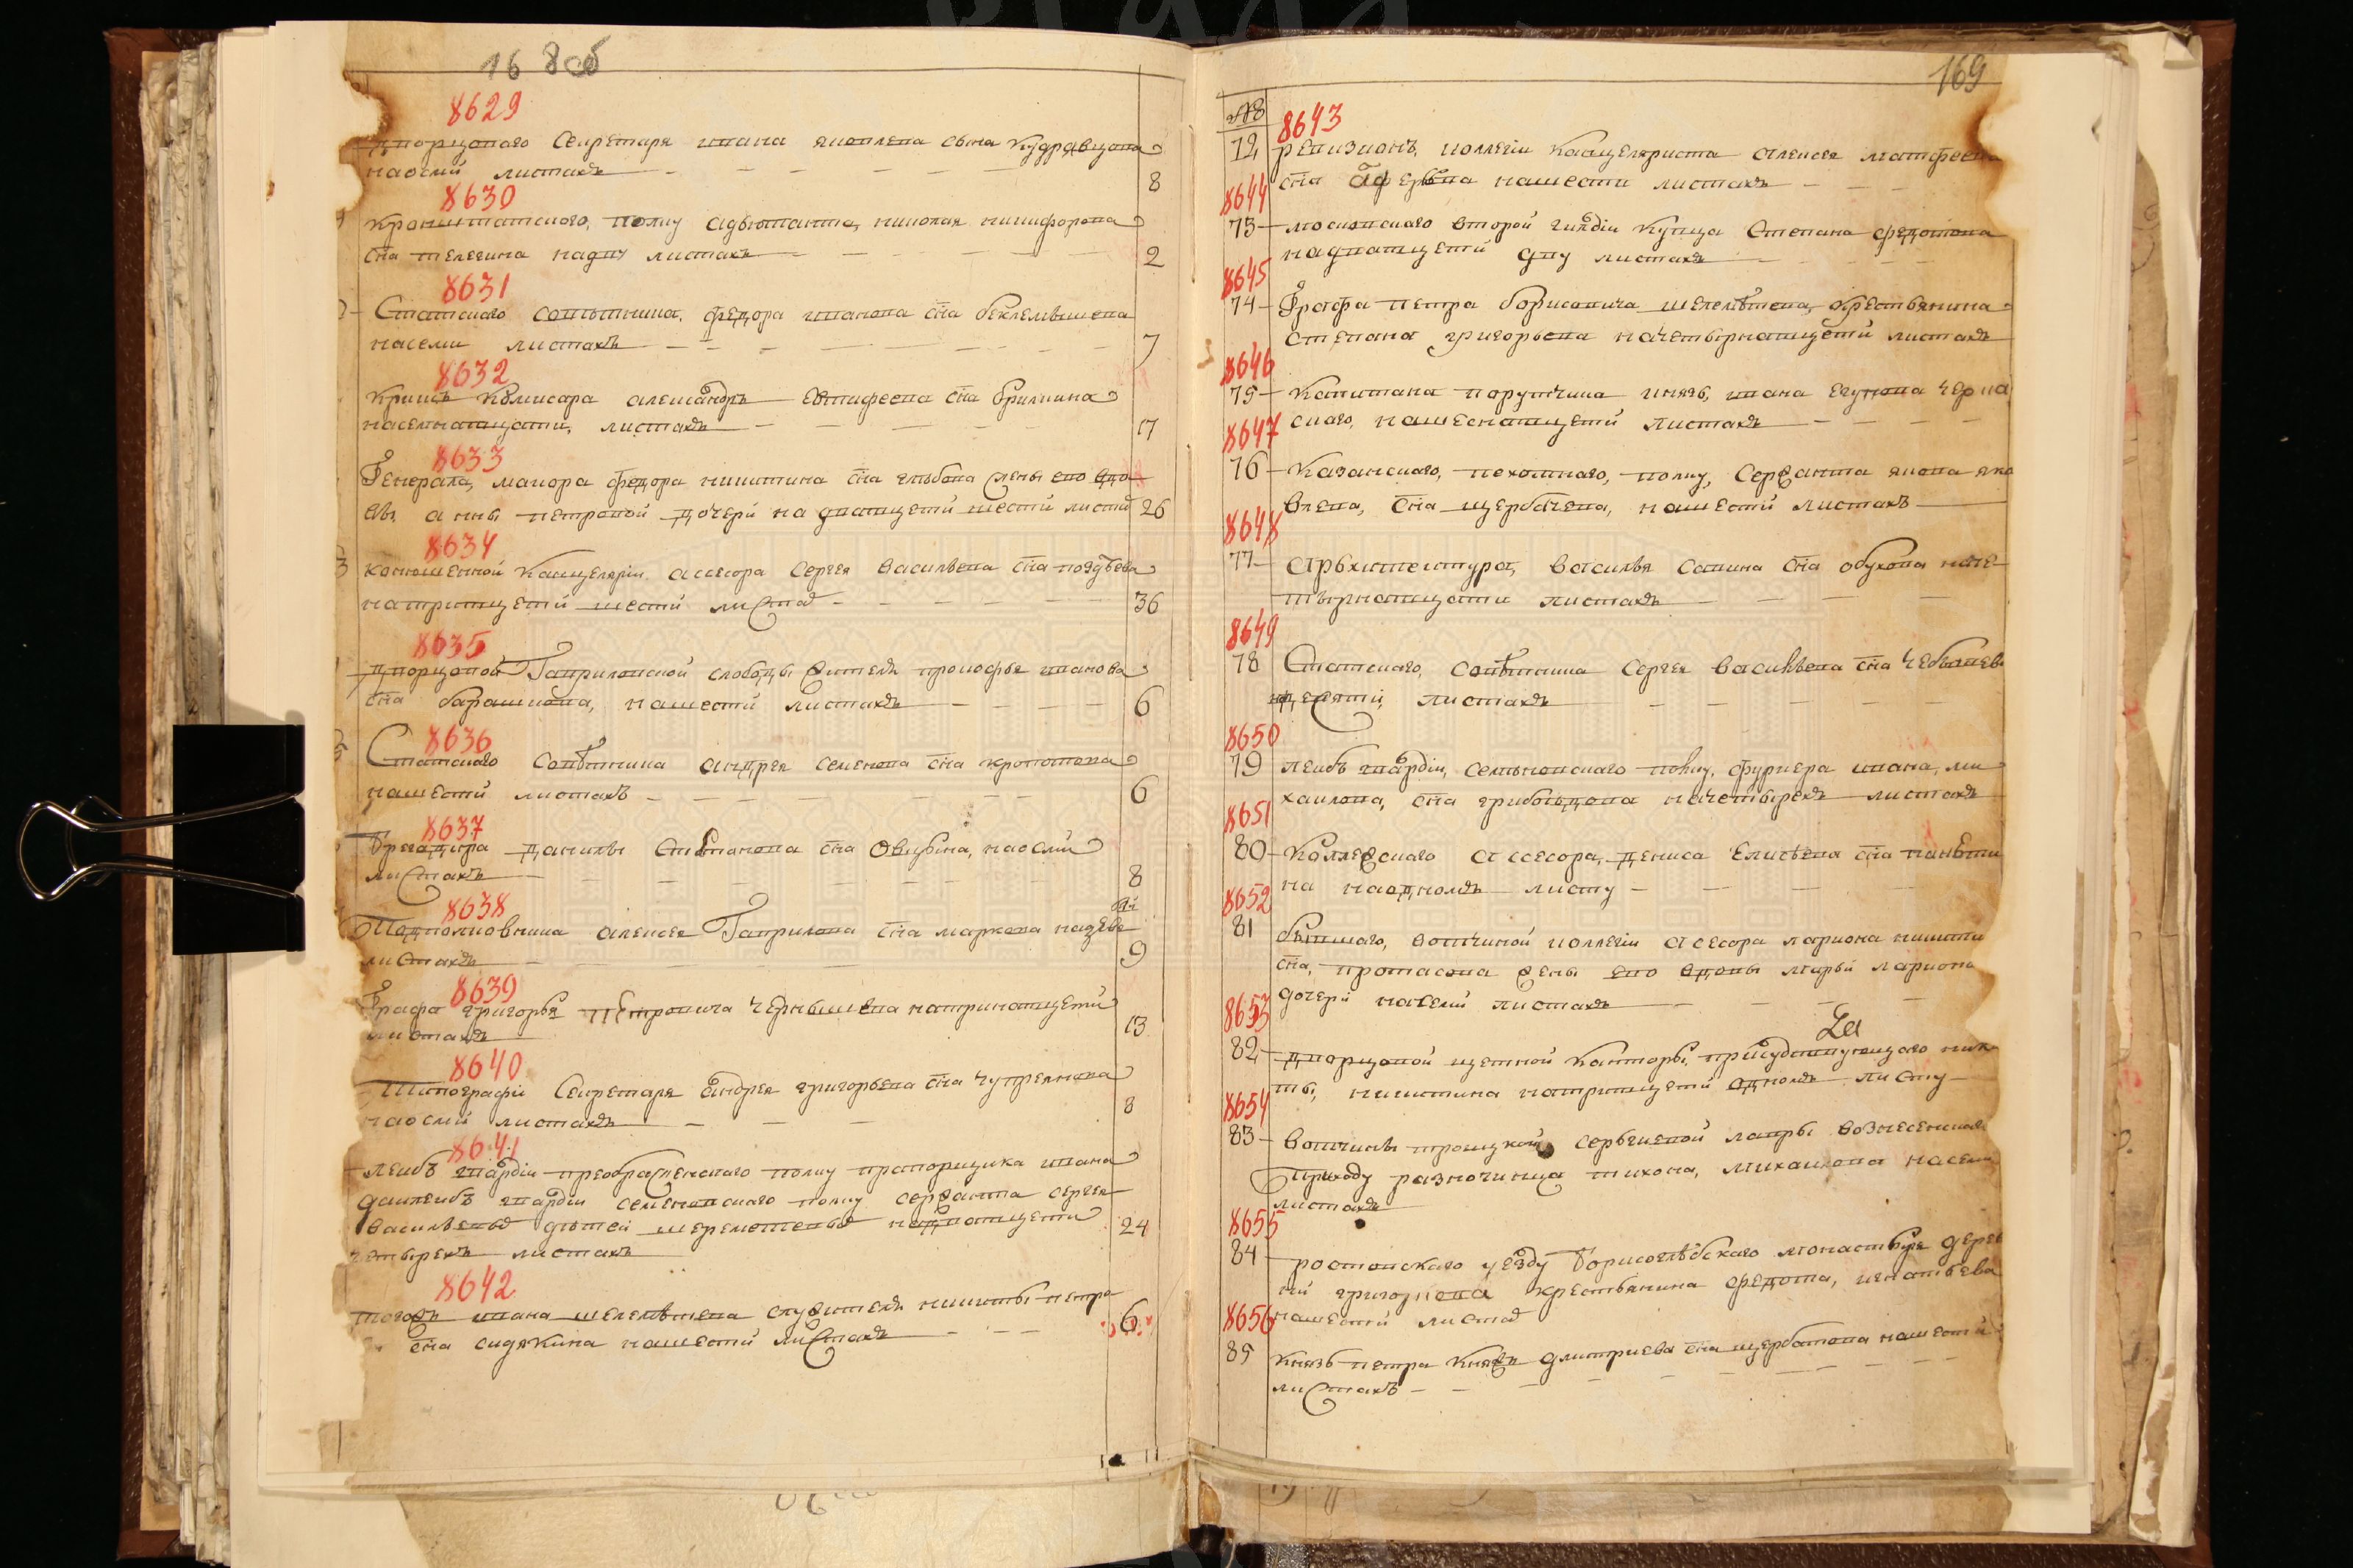 168 об
8629
дворцоваго секретаря ивана яковлева сына кудрявцова
на осми листахъ 8
8630
кронштатского, полку адъютанта, николая никифорова
сна телегина на дву листахъ 2
8631
Статского советника, федора иванова сна беклемишева
на семи листахъ 7
8632
кригсъ комисара александръ евтифеева сна брилкина
на семнатцати, листахъ 17
8633
Генерала, маиора федора никитина сна глебова жены ево вдо
вы, анны петровой дочери на дватцети шести листах 26
8634
конюшенной канцелярии асесора сергея васильева сна поздеева
на тритцети шести листах 36
8635
дворцовой Гавриловской слободы жителя прокофья иванова
сна барашкова, на шести листахъ 6
8636
Статского советника андрея семенова сна кропотова
на шести листахъ 6
8637
брегадира данилы степанова сна овцына, на осми
листахъ 8
8638
Подполковника алексея Гаврилова сна маркова на деве
ти
листахъ 9
8639
Графа григорья петровича чернышева на тринатцети
листахъ 13
8640
Типографии секретаря андрея григорьева сна
на осми листахъ 8
8641
леибъ гвардии преображенского полку прапорщика ивана
да леибъ гвардии семеновского полку сержанта сергея
васильевых детей шереметевых на дватцети
четырехъ листахъ 24
8642
ивана шереметева служителя никиты петро
сна сидякина на шести листахъ 6
169
№
8643
72 ревизионъ, коллегии канцеляриста алексея матфеева
сна на шести листахъ
8644
73 московского второй гилдии купца степана федотова
на дватцети дву листахъ
8645
74 Графа петра борисовича шереметева, крестьянина
степана григорьева на четырнатцети листахъ
8646
75 капитана порутчика князь, ивана егупова черка
ского, на шеснатцети листахъ
8647
76 казанского, пехотнаго, полку, сержанта якова яко
влева, сна щербачева, на шести листахъ
8648
77 архитектура, василья савина сна обухова на че
тырнатцати листахъ
8649
78 Статского, советника сергея васильева сна чебышева
на десяти, листахъ
8650
79 леибъ гвардии, семеновского полку, фуриера ивана, ми
хаилова, сна грибоедова на четырехъ листахъ
8651
80 коллежского асесора, дениса елисеева сна
на на одномъ листу
8652
81 бывшаго, вотчиной коллегии асесора лариона никити
сна, протасова жены ево вдовы марьи ларионо
дочери на семи листахъ
8653
82 дворцовой щетной канторы, присудствующаго за ники
ты, никитина на тритцети одномъ листу
8654
83 вотчины троицкой сергиевой лавры вознесенского
приходу разночинца тихона, михаилова на семи
листахъ
8655
84 ростовскаго уезду борисоглебскаго монастыря дерев
ни григоркова крестьянина федота, игнатьева
на шести листах
8656
85 князь петра князь дмитриева сна щербатова на шести
листахъ